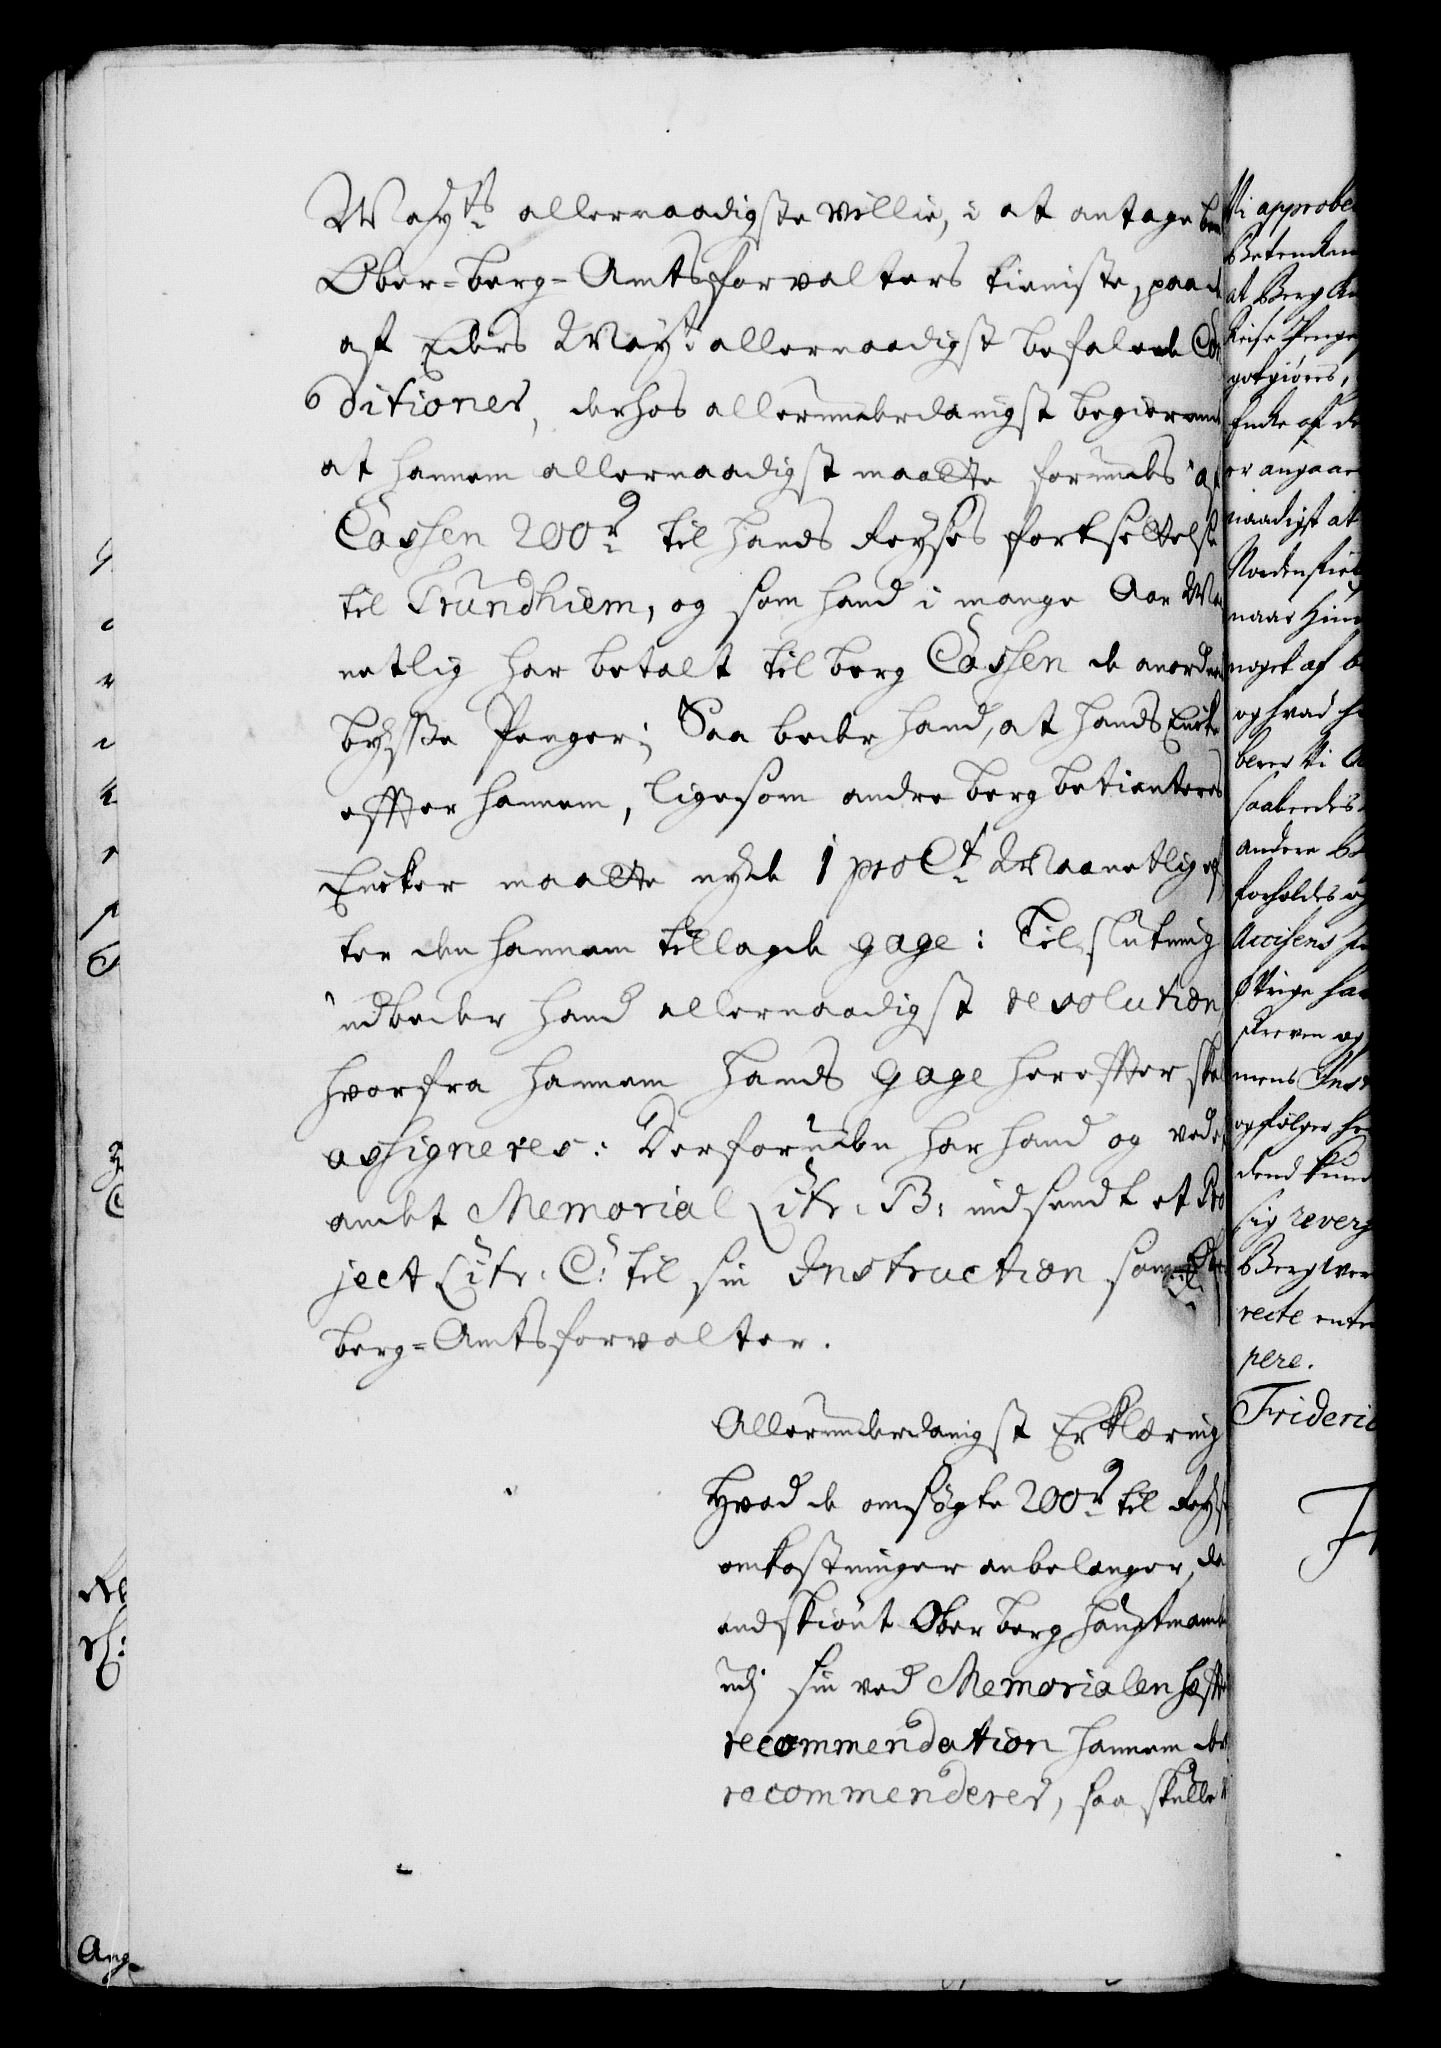 Mayts allernaadigste villie, i at antage bem
Ober-berg-Amtsforvalters tieniste, paa de
af Eders Mayt: allernaadigst befalede Con
ditioner, derhos allerunderdanigst begierende
at hannem allernaadigst maatte forundes af
Cassen 200 rd til hands Reyses fortsettelse
til Trundhiem, og som hand i mange Aar Maa
netlig har betalt til berg Cassen de anordnede
bysse Penger; Saa beder hand, at hands Encke
effter hannem, ligesom andre berg betienteres
Encker maatte nyde 1 pro Ct. Maanetlig ef
ter den hannem tillagde gage: Til slutning
udbeder hand allernaadigst resolution
hvorfra hannem hands gage hereffter skal
assigneres: Desforuden har hand og ved
ankt Memorial Litr: B: indsendt et Pro
ject Litr: C: til sin Instruction som
berg-Amtsforvalter.
Allerunderdanigst Erklæring
Hvad de ansøgte 200 rd til Reyse
omkostninger anbelanger, da
endskiønt Ober berg hauptmanden
udj sin ved Memorialen hefftede
recommendation hannem der
recommenderer, saa skulle
Vi approbe
Betenken
at Berg A
Reise Penge
gotgiøres,
Encke af d
er angaaen
naadigst at
Nordenfiel
naar hin
noget af b
og hvad h
berer Vi
saaledes
andere be
forholdes og
Accisens
Øvrige ha
skreven og
mens Inst
og følger he
dend kun
sig revers
Bergwer
recte ent
pere.
Frideric
Ang